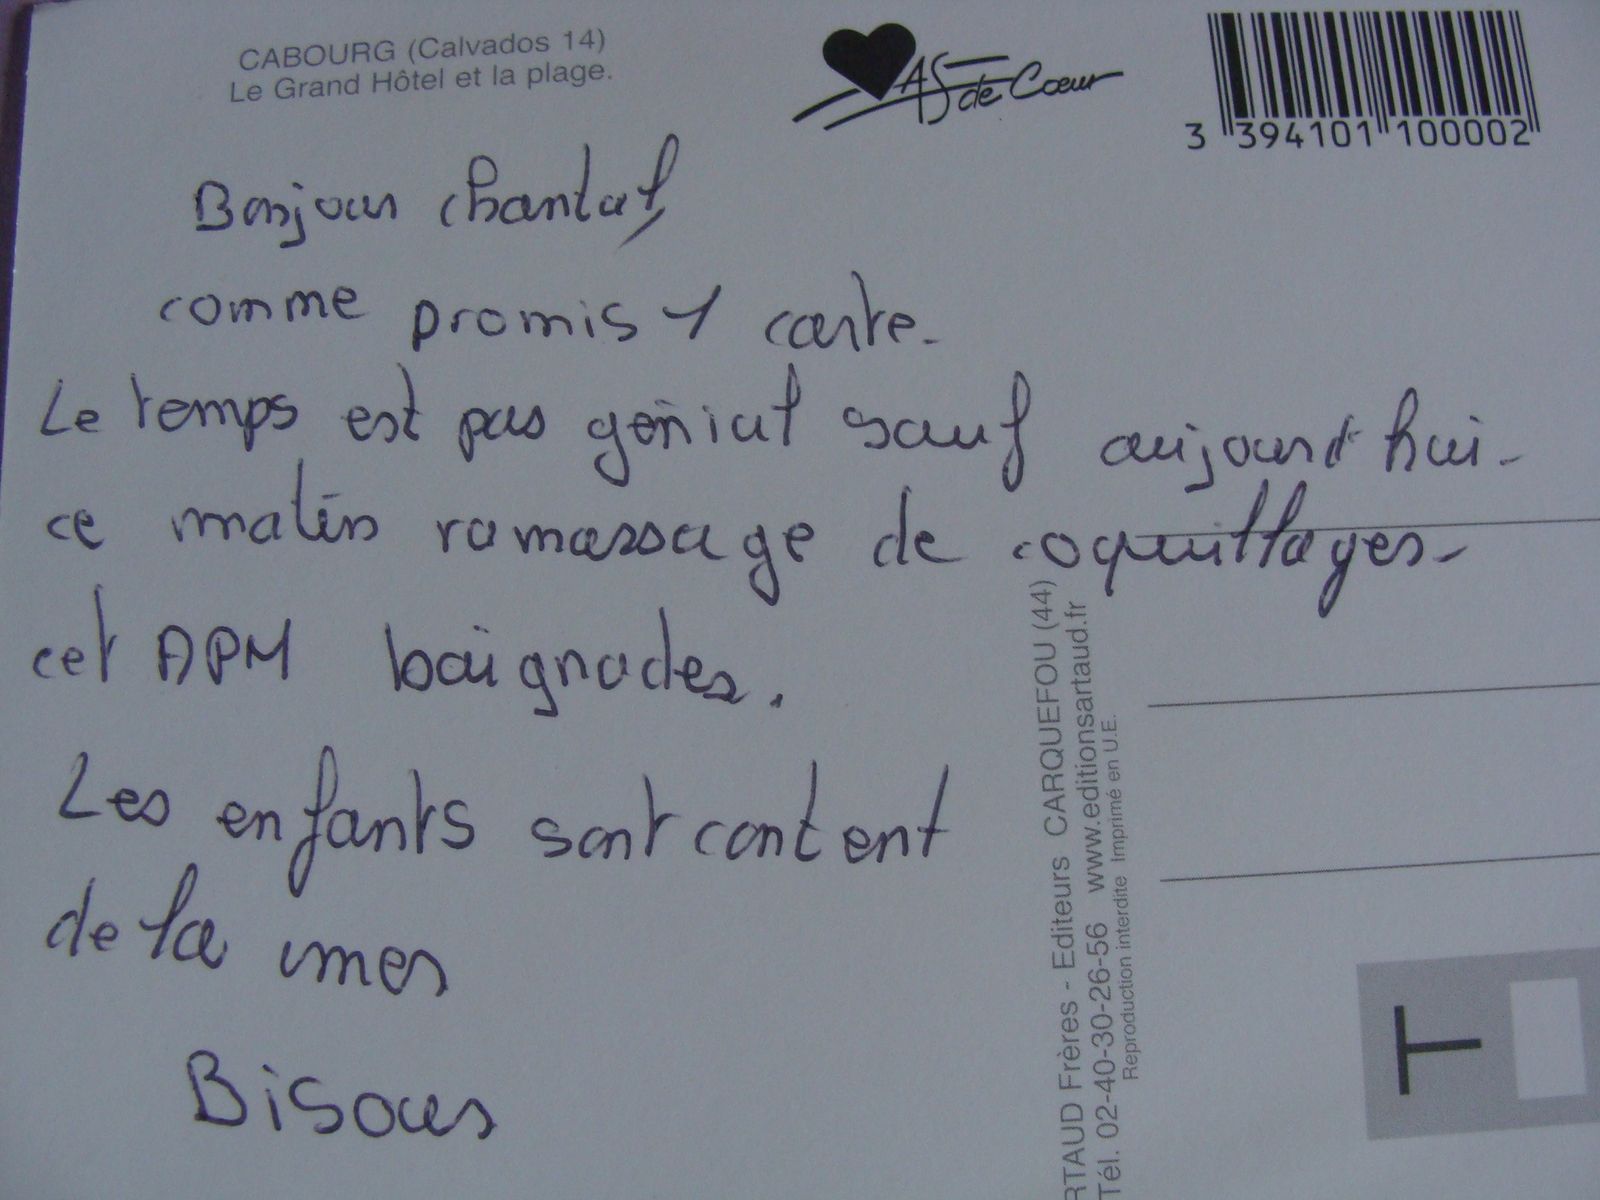 CABOURG (Calvados 14)
Le Grand Hôtel et la plage.
AS de Cœur
3 394101 100002
Bonjour chantal,
comme promis 1 carte.
Le temps est pas génial sauf aujourd'hui.
ce matin ramassage de coquillages.
cet APM baignades.
Les enfants sont content
de la mer
Bisous
RTAUD Frères - Editeurs CARQUEFOU (44)
Tél. 02-40-30-26-56 www.editionsartaud.fr
Reproduction interdite Imprimé en U.E.
T